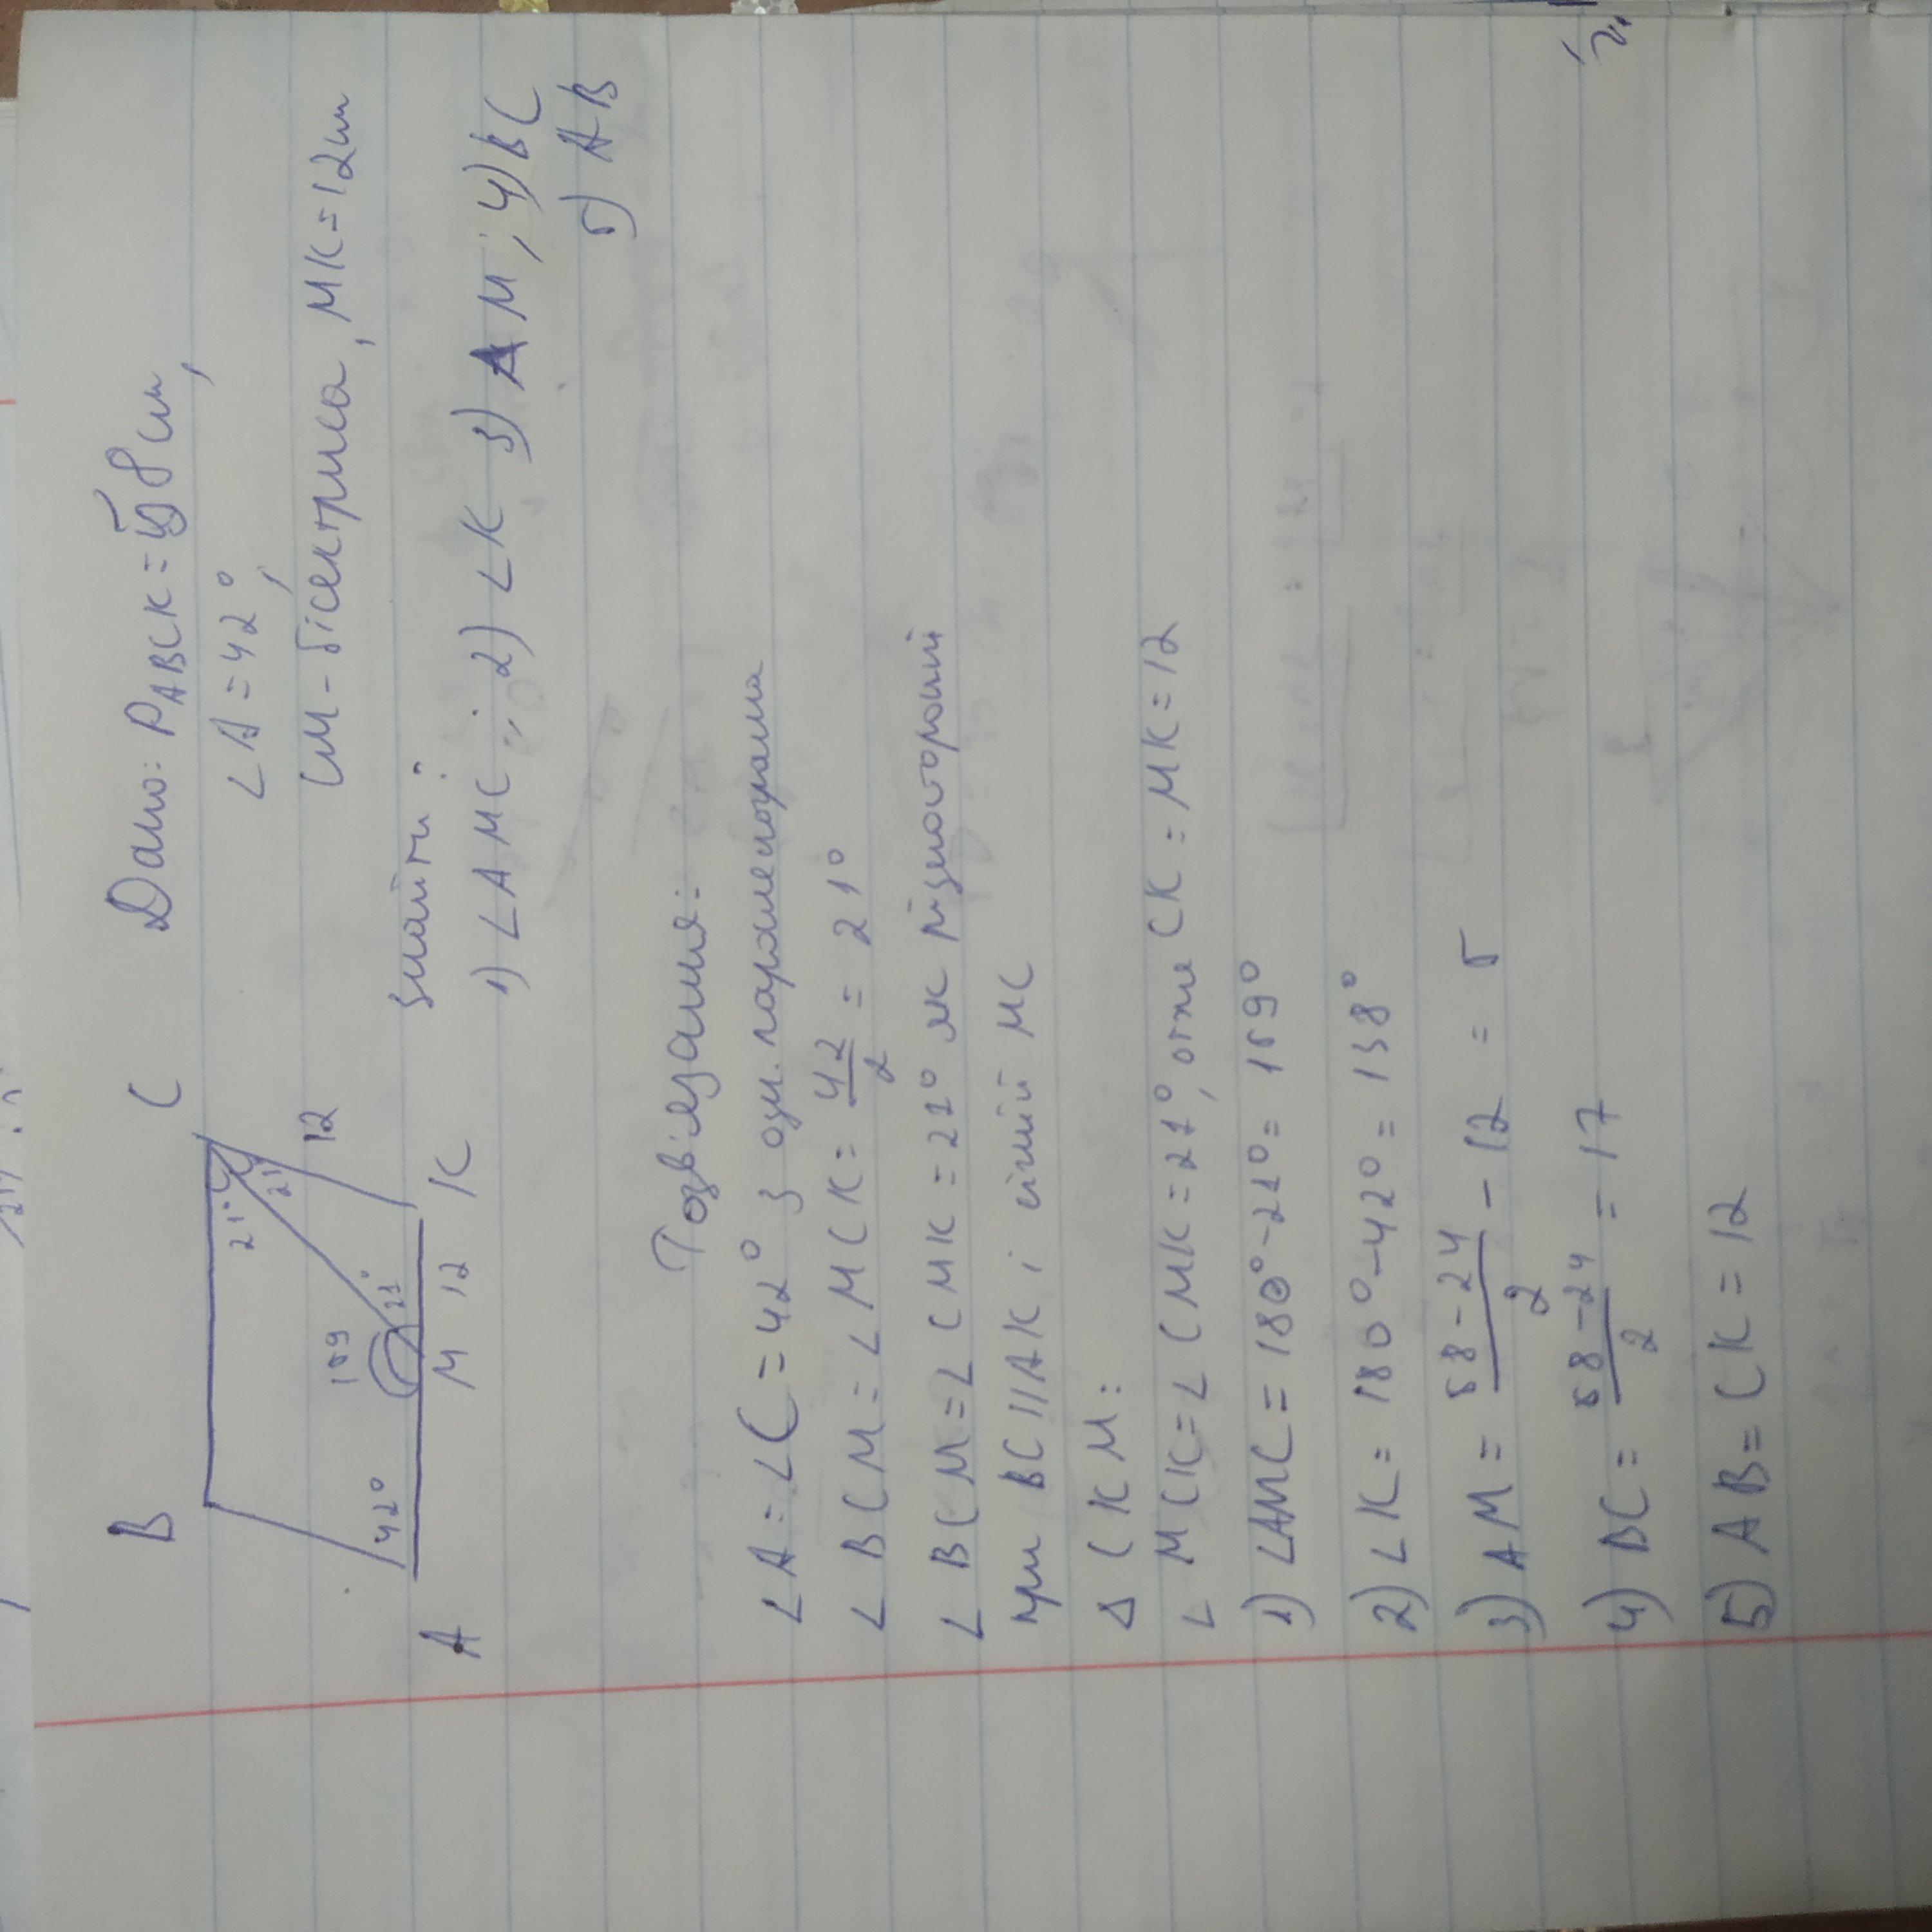 B C
21° 21
12
42° 159 21°
A M 12 K
Дано: PABCK = 58 см,
∠A = 42°,
CM - бісектриса, MK = 12 см
знайти:
1) ∠AMC; 2) ∠K 3) AM; 4) BC
5) AB
Розв'язання:
∠A = ∠C = 42° з озн. паралелограма
∠BCM = ∠MCK = 42/2 = 21°
∠BCM = ∠CMK = 21° як різносторонні
при BC || AK і січній MC
Δ CKM:
∠MCK = ∠CMK = 21°, отже CK = MK = 12
1) ∠AMC = 180° - 21° = 159°
2) ∠K = 180° - 42° = 138°
3) AM = 58 - 24/2 - 12 = 5
4) BC = 58 - 24/2 = 17
5) AB = CK = 12